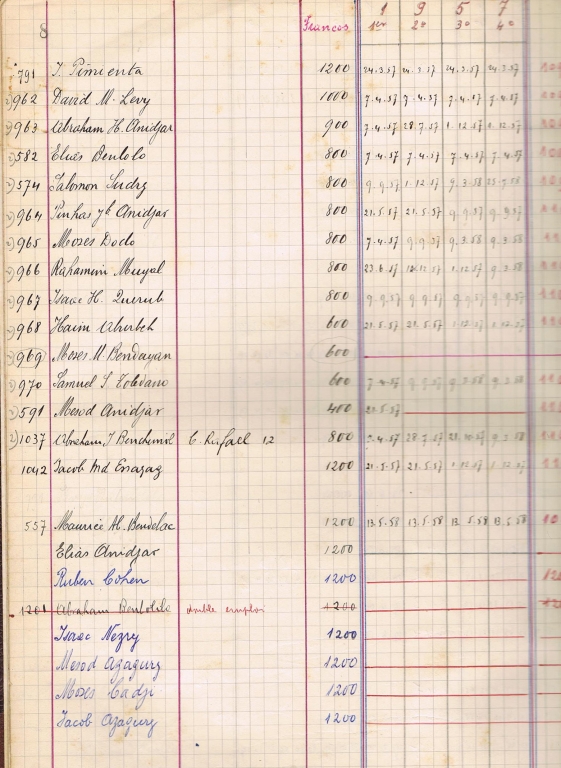 8 Francos 1 9 5 7
1er 2º 3º 4º
791 J. Pimienta 1200 24.3.57 24.3.57 24.3.57 24.3.57
962 David M. Levy 1000 7.4.57 7.4.57 7.4.57 7.4.57
963 Abraham H. Anidjar 900 7.4.57 28.7.57 1.12.57 1.12.57
582 Elias Bentolo 800 7.4.57 7.4.57 7.4.57 7.4.57
574 Salomon Sudry 800 9.9.57 1.12.57 9.3.58
964 Pinhas Anidjar 800 21.5.57 21.5.57 9.9.57 9.9.57
965 Moses Dodo 800 7.4.57 9.9.57 9.3.58 9.3.58
966 Rahamim Muyal 800 23.6.57 1.12.57 9.3.58
967 Isaac H. Querub 800 9.9.57 9.9.57 9.9.57 9.9.57
968 Haim 600 21.5.57 21.5.57 1.12.57 1.12.57
969 Moses M. Bendayan 600
970 Samuel S. Toledano 600 7.4.57 9.9.57 9.3.58 9.3.58
591 Mesod Anidjar 400 21.5.57
1037 Abraham J. Benchimol C. Rafael 12 800 7.4.57 28.7.57 9.3.58
1042 Jacob Md Essayag 1200 21.5.57 21.5.57 1.12.57 1.12.57
557 Maurice Ab. Bendelac 1200 13.5.58 13.5.58 13.5.58 13.5.58
Elias Anidjar 1200
Ruben Cohen 1200
1201 Abraham Bentolila double emploi 1200
Isaac Nezry 1200
Mesod Azagury 1200
Moses Cadji 1200
Jacob Azagury 1200